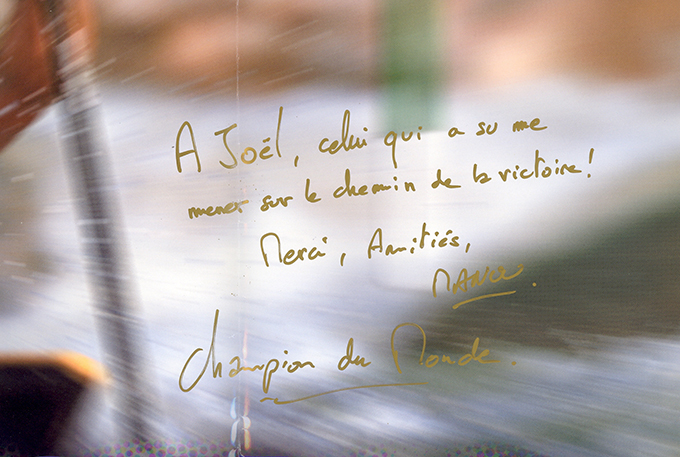 A Joël, celui qui a su me
mener sur le chemin de la victoire !
Merci, Amitiés,
Champion du Monde.